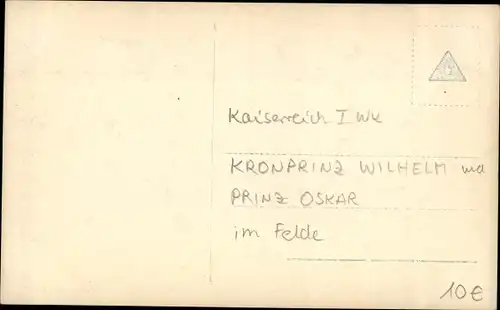 Kaiserreich I Wk
KRONPRINZ WILHELM und
PRINZ OSKAR
im Felde
10€